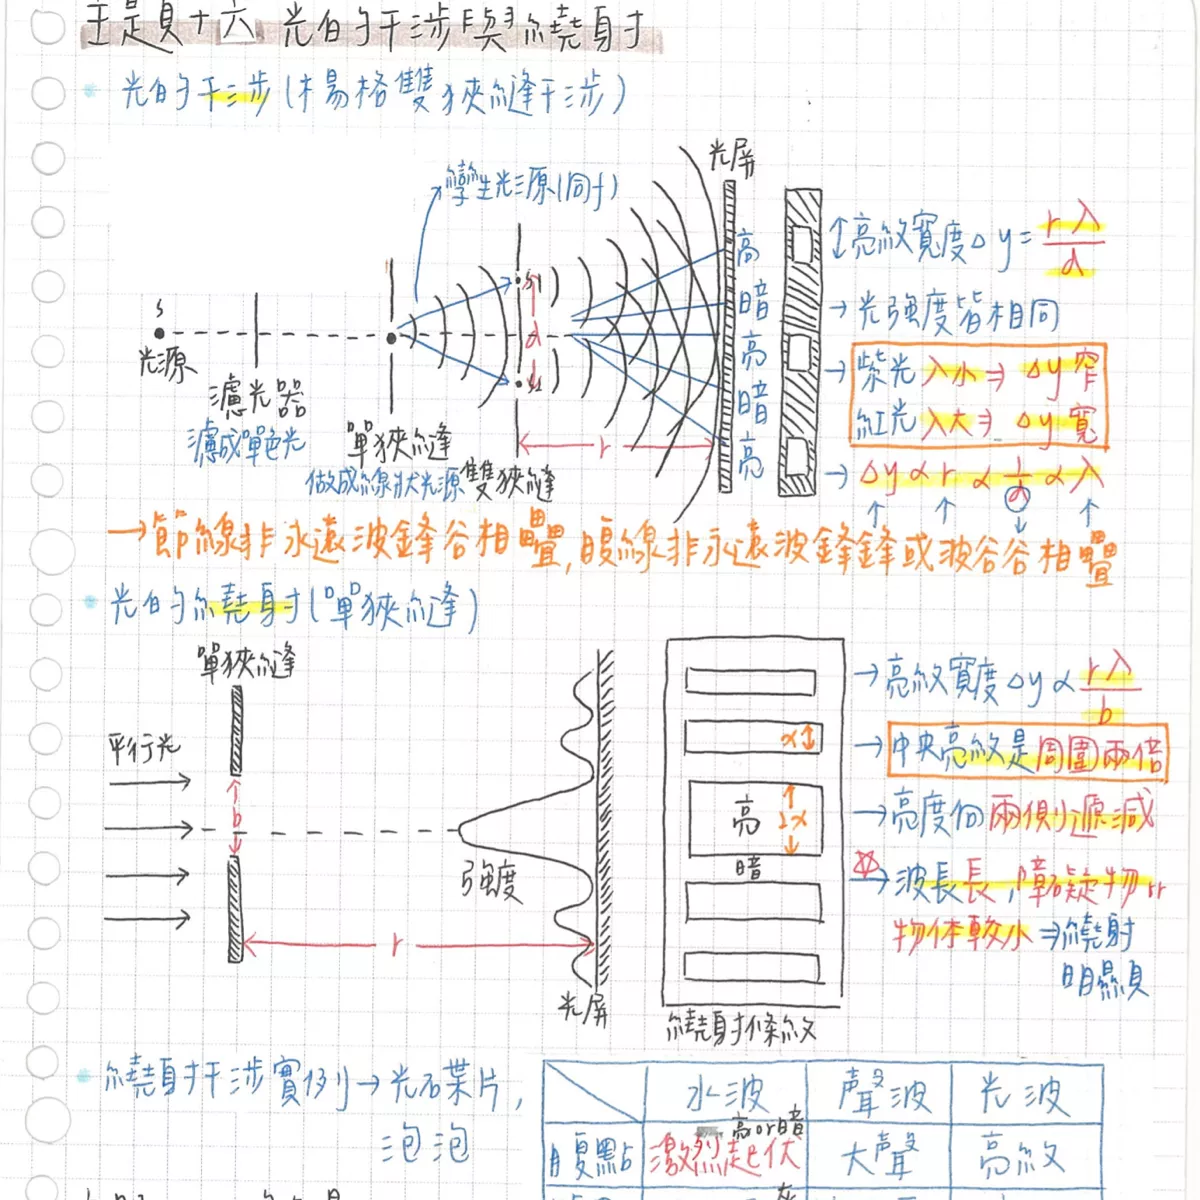 主題十六 光的干涉與繞射
光的干涉(楊格雙狹縫干涉)
孿生光源(同f)
光屏
S
光源
濾光器
濾成單色光
單狹縫
做成線狀光源
雙狹縫
S1
d
S2
r
亮
暗
亮
暗
亮
亮紋寬度Δy=rλ/d
→光強度皆相同
→紫光 λ小⇒Δy窄
紅光 λ大⇒Δy寬
→Δy∝r∝1/d∝λ
→節線非永遠波鋒谷相疊,腹線非永遠波鋒鋒或波谷谷相疊
光的繞射(單狹縫)
單狹縫
平行光
b
r
強度
光屏
x
亮
2x
暗
繞射條紋
→亮紋寬度Δy∝rλ/b
→中央亮紋是周圍兩倍
→亮度向兩側遞減
☆→波長長,障礙物or
物体較小⇒繞射
明顯
繞射干涉實例→光石葉片,
泡泡
水波 聲波 光波
亮or暗
腹點 激烈起伏 大聲 亮紋